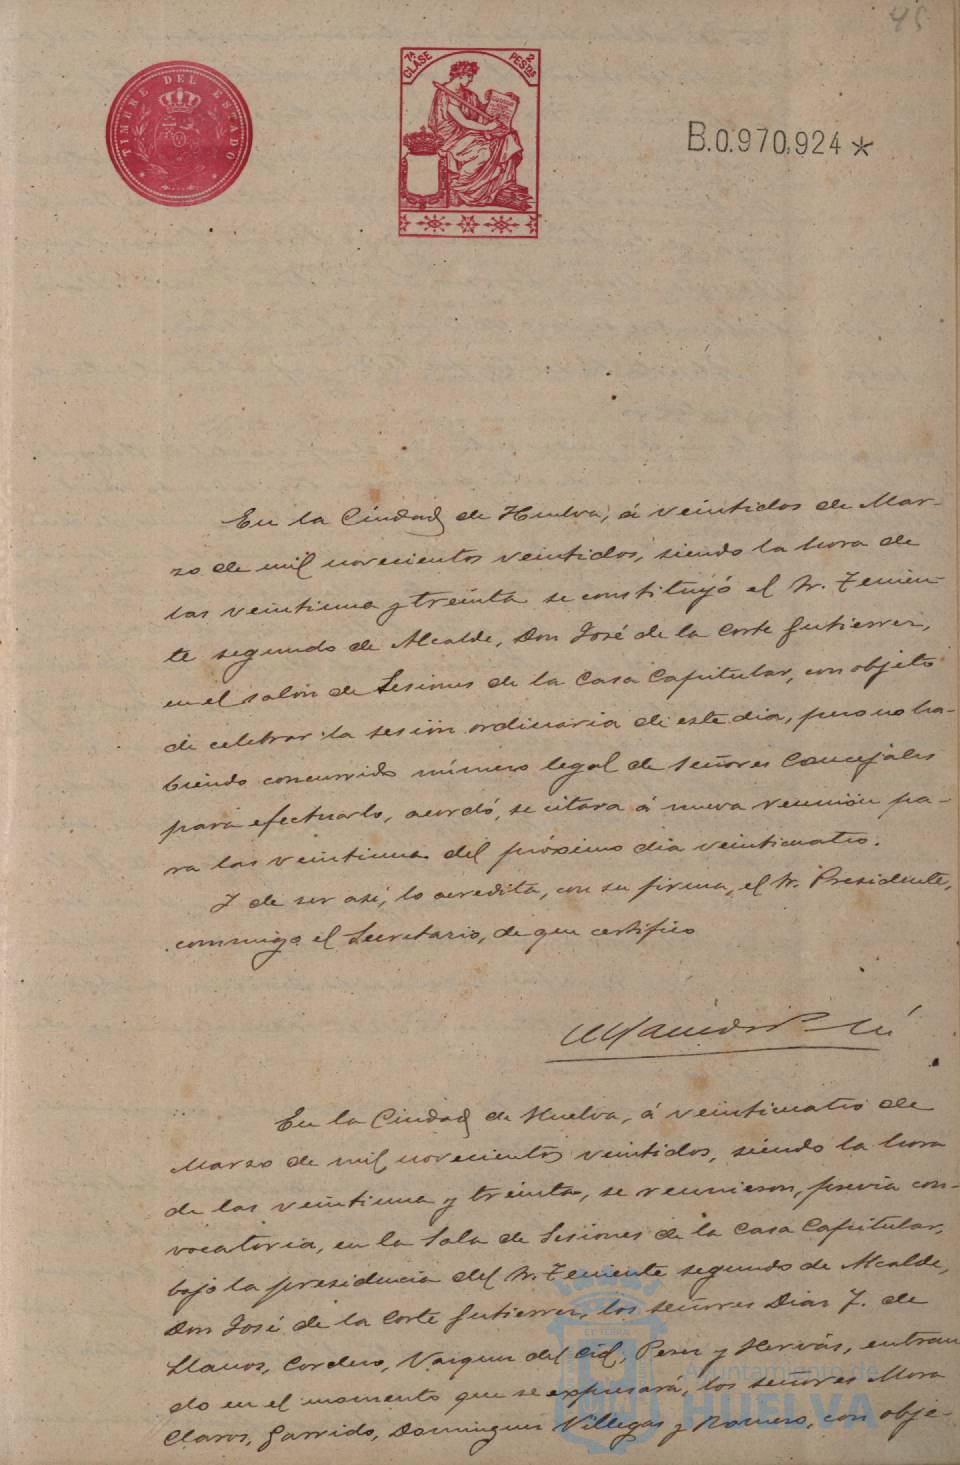 45
TIMBRE DEL ESTADO
7ª CLASE
2 PESTAS
B.0.970,924*
En la Ciudad de Huelva, á veintidos de Mar-
zo de mil novecientos veintidos, siendo la hora de
las veintiuna y treinta se constituyó el Sr. Tenien-
te segundo de Alcalde, Don José de la Corte Gutierrez,
en el salón de Sesiones de la Casa Capitular, con objeto
de celebrar la sesión ordinaria de este dia, pero no ha-
biendo concurrido número legal de Señores Concejales
para efectuarlo, acordó, se citara á nueva reunión pa-
ra las veintiuna del próximo dia veinticuatro.
Y de ser asi, lo acredita, con su firma, el Sr. Presidente,
conmigo el Secretario, de que certifico
En la Ciudad de Huelva, á veinticuatro de
Marzo de mil novecientos veintidos, siendo la hora
de las veintiuna y treinta, se reunieron, previa con-
vocatoria, en la Sala de Sesiones de la Casa Capitular,
bajo la presidencia del Sr. Teniente segundo de Alcalde,
Don José de la Corte Gutierrez, los señores Diaz F. de
Llanos, Cordero, Vazquez del Cid, Perez y Hervás, entran
do en el momento que se expresará, los señores Mora
Claros, Garrido, Dominguez Villegas y Romero, con obje-
Ayuntamiento de
HUELVA